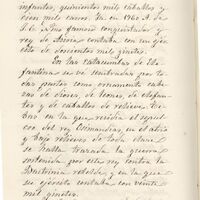 infantes, quinientos mil caballos y
cien mil carros. En en 1760 A. de
J. C. Rhus Gamsés conquistador y
rey de Asiria contaba con un ejer
cito de doscientos mil ginetes.
En las catacumbas de Ele
fantina se ve sembradas por to
das partes como ornamento cabe
zas de dioses, de leones, de elefan
tes y de caballos de relieve. Tam
bien en la que residia el sepul
cro del rey Osimandias, en el atrio
y bajo relieves de toda clase
se halla trazada la guerra
sostenida por este rey contra la
Bactriana rebelde, y en la que
su ejército contaba con veinte
mil ginetes.